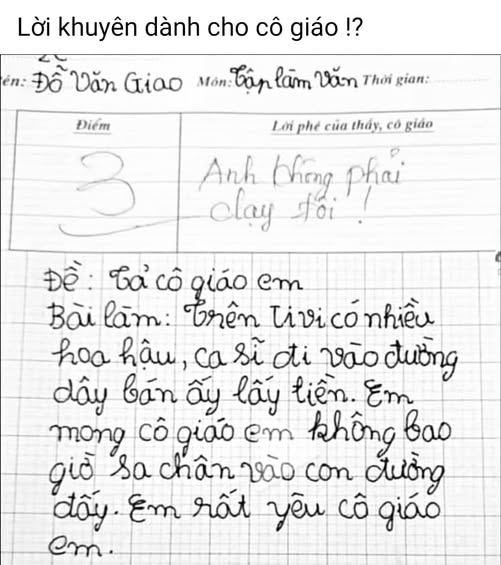 Lời khuyên dành cho cô giáo !?
ên: Đỗ Văn Giao Môn: Tập làm Văn Thời gian:
Điểm Lời phê của thầy, cô giáo
3 Anh không phải
dạy tôi !
Đề: Tả cô giáo em
Bài làm: Trên Tivi có nhiều
hoa hậu, ca sĩ đi vào đường
dây bán ấy lấy tiền. Em
mong cô giáo em không bao
giờ sa chân vào con đường
đấy. Em rất yêu cô giáo
em.